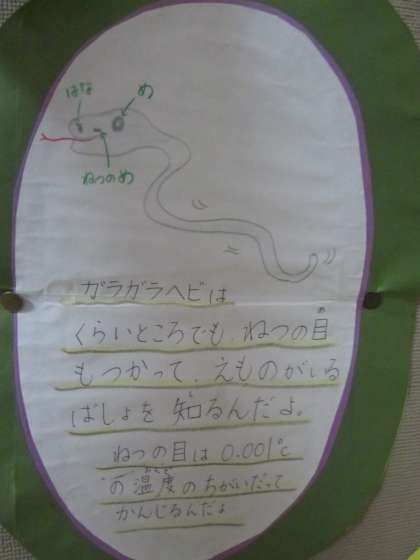 はな
め
ねつのめ
ガラガラヘビは
くらいところでも、ねつの目
もつかって、えものがいる
ばしょを知るんだよ。
ねつの目は0.001℃
の温度のちがいだって
かんじるんだよ